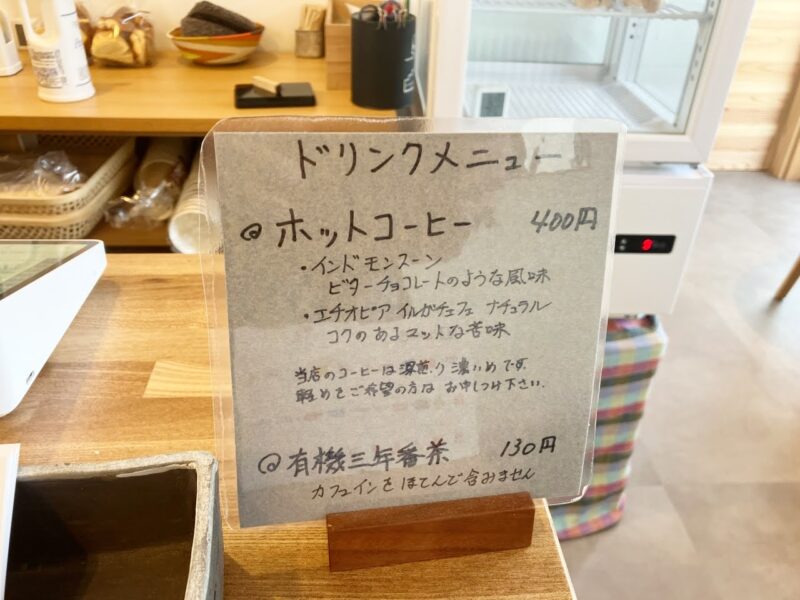 ドリンクメニュー
@ ホットコーヒー 400円
・インドモンスーン
ビターチョコレートのような風味
・エチオピア イルガチェフェ ナチュラル
コクのあるマットな苦味
当店のコーヒーは深煎り濃いめです.
軽めをご希望の方は お申しつけ下さい.
@ 有機三年番茶 130円
カフェインをほとんど含みません